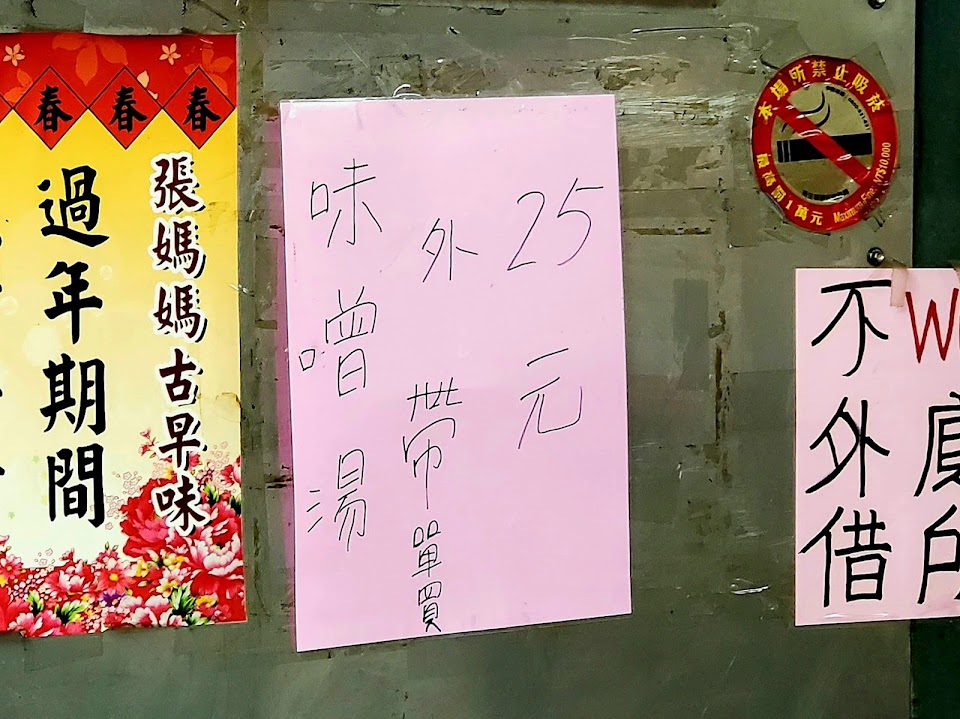 春 春 春
張媽媽古早味
過年期間
味噌湯
外帶單買
25元
本場所禁止吸菸
最高罰1萬元 Maximum Fine, NT$10,000
不外借